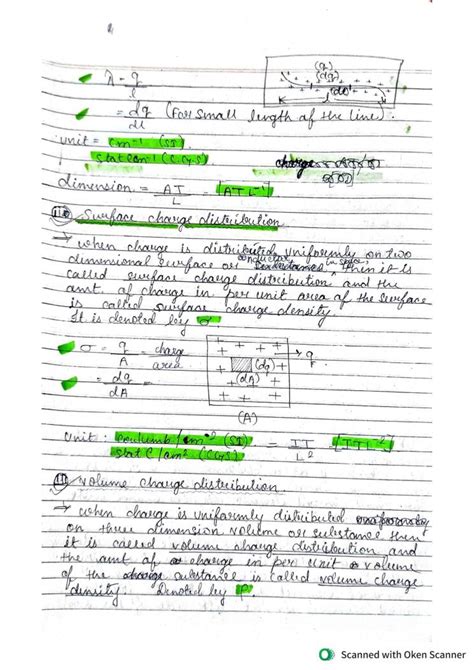 (q)
(dq)
λ = q/l
(dl)
l
= dq/dl (For small length of the line).
unit = Cm⁻¹ (SI)
Stat cm⁻¹ (CGS)
dimension = AT/L = [ATL⁻¹]
Surface charge distribution
→ when charge is distributed uniformly on two
dimensional surface or conductor in space, then it is
called surface charge distribution and the
amt. of charge in per unit area of the surface
is called surface charge density.
It is denoted by σ.
σ = q/A = charge/area
q
(dq)
= dq/dA
(dA)
(A)
Unit : coulumb/m² (SI) = IT/L² =
Stat C/cm² (CGS)
Volume charge distribution.
→ when charge is uniformly distributed
on three dimension volume or substance then
it is called volume charge distribution and
the amt of charge in per unit volume
of the substance is called volume charge
density. Denoted by ρ.
Scanned with Oken Scanner